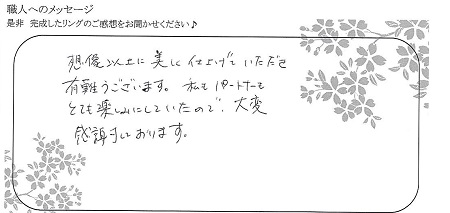 職人へのメッセージ
是非 完成したリングのご感想をお聞かせください♪
想像以上に美しく仕上げていただき
有難うございます。私もパートナーも
とても楽しみにしていたので、大変
感謝しております。